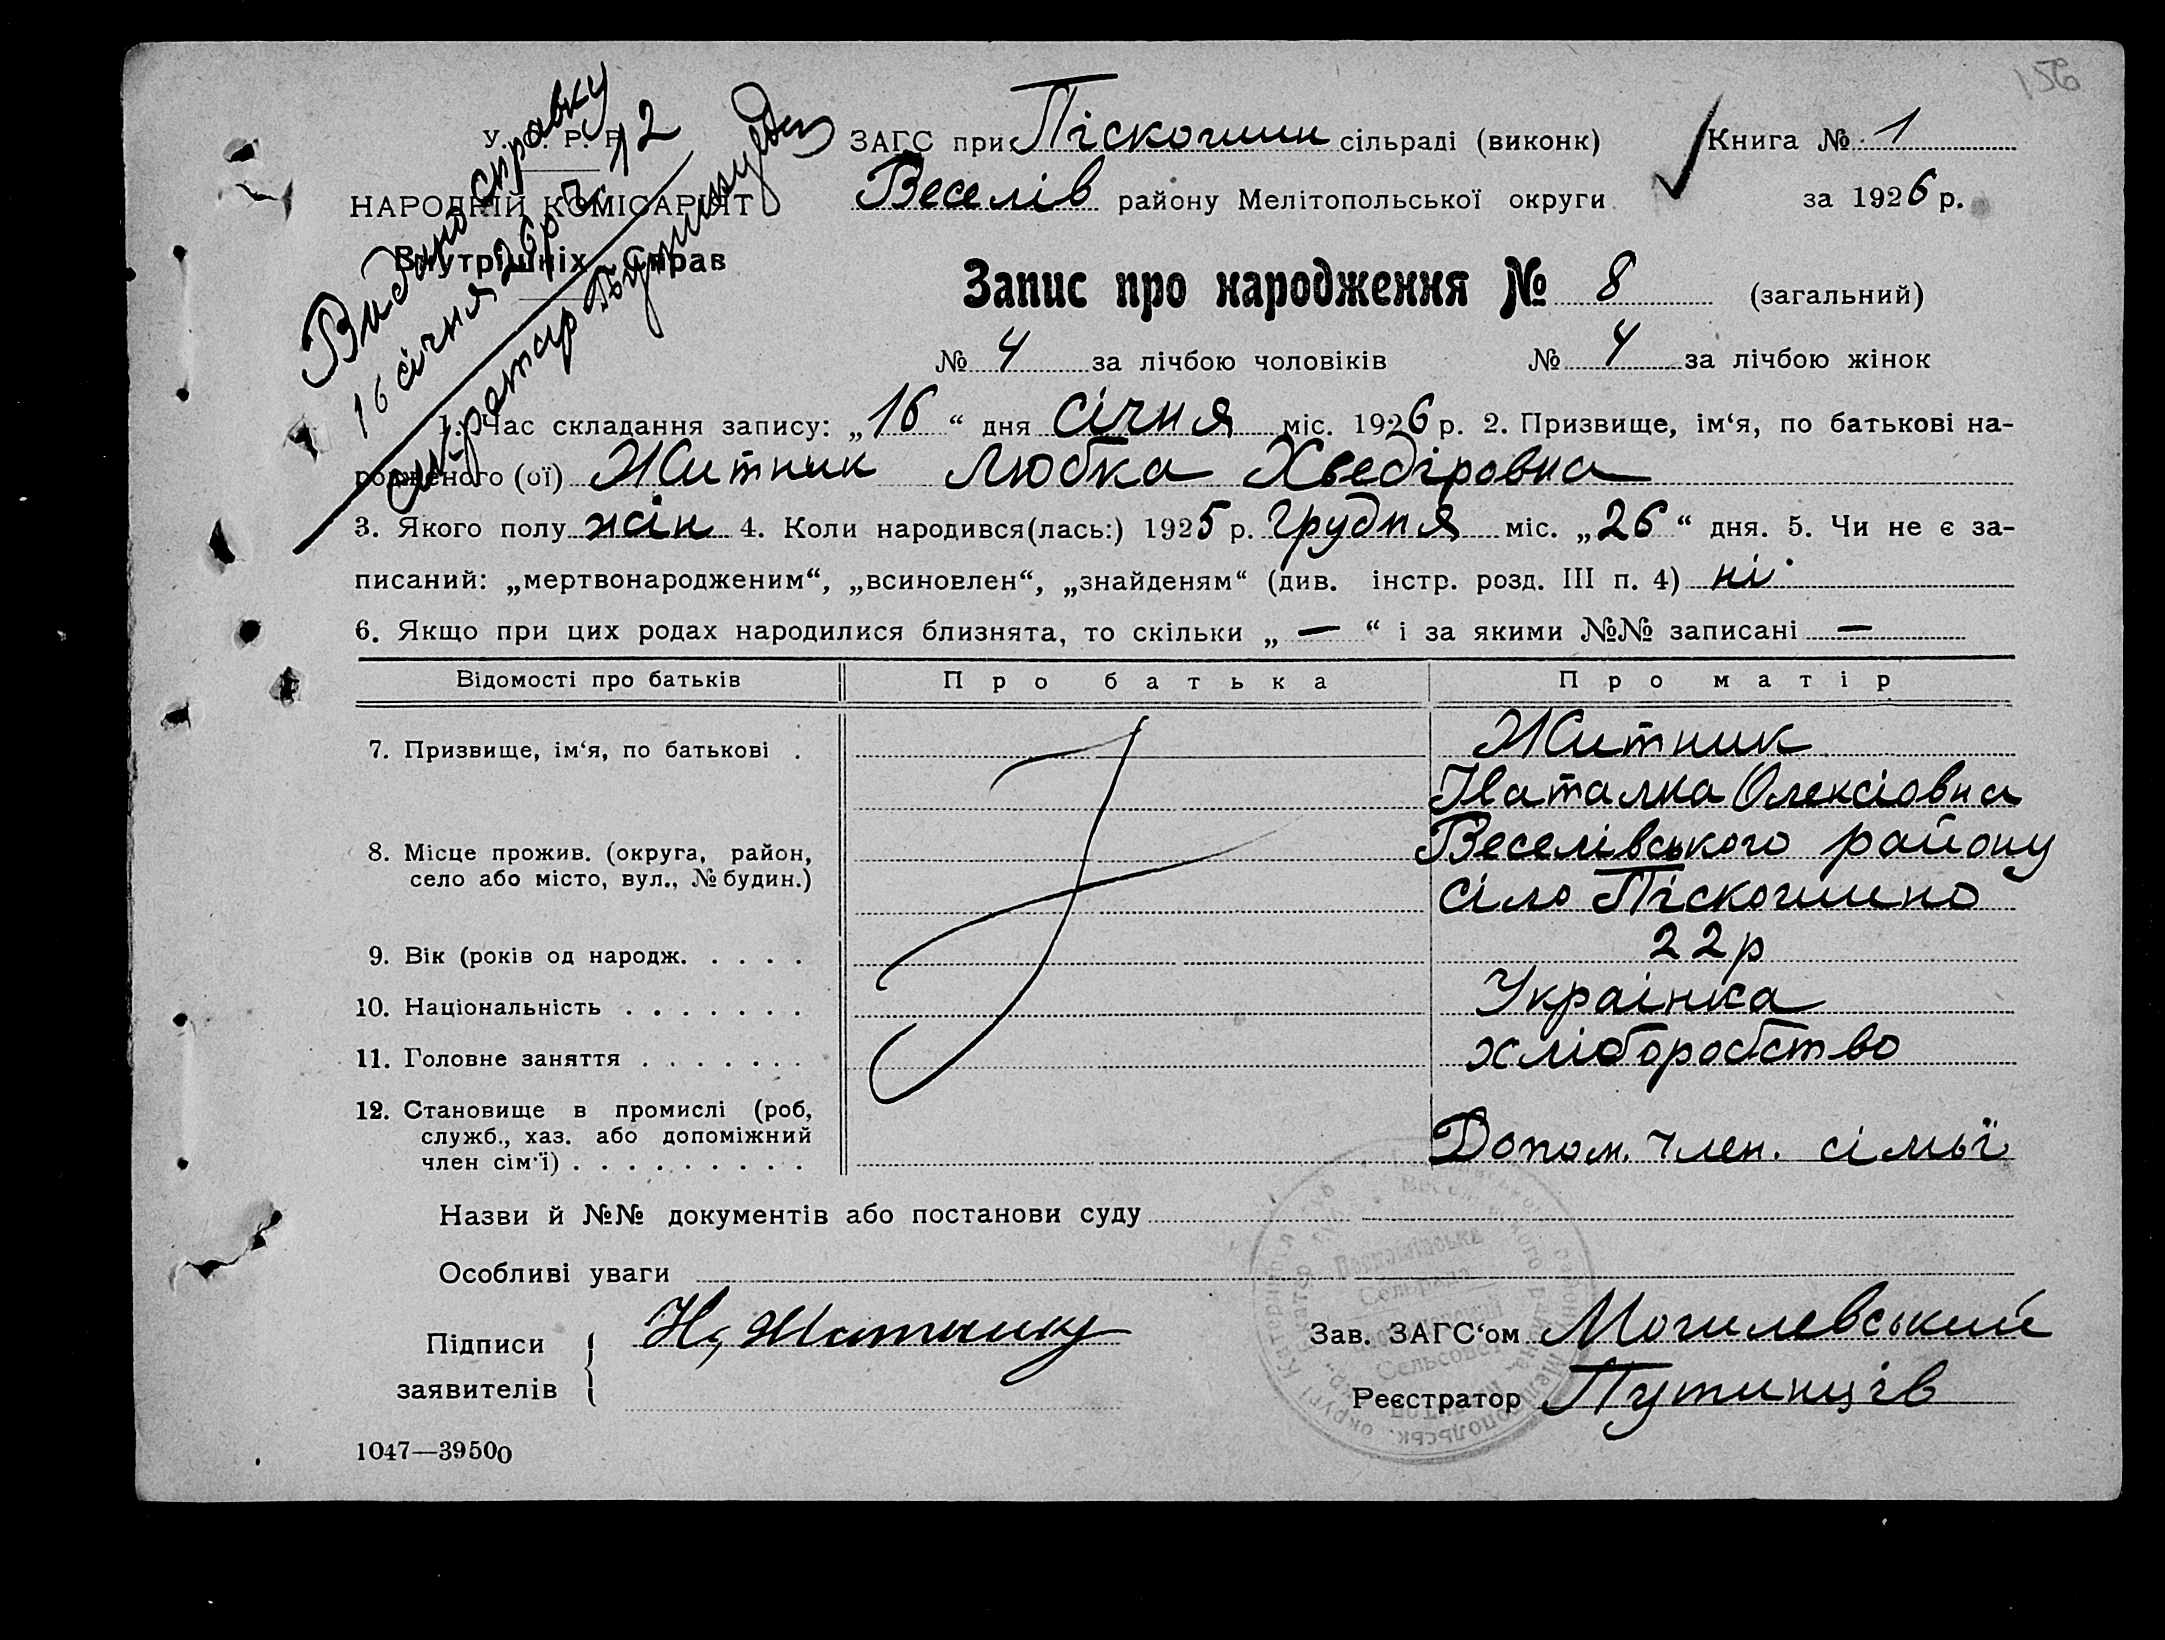 156
У. С. Р. Р.
НАРОДНІЙ КОМІСАРІЯТ
Внутрішніх Справ
Видано справку
16 січня 26 р № 12
ЗАГС при Піскошин сільраді (виконк) Книга № 1
Веселів району Мелітопольської округи за 1926 р.
Запис про народження № 8 (загальний)
№ 4 за лічбою чоловіків № 4 за лічбою жінок
1. Час складання запису: „16“ дня Січня міс. 1926 р. 2. Призвище, ім‘я, по батькові на-
родженого (ої) Житник Любка Хведіровна
3. Якого полу жін 4. Коли народився(лась:) 1925 р. Грудня міс. „26“ дня. 5. Чи не є за-
писаний: „мертвонародженим“, „всиновлен“, „знайденям“ (див. інстр. розд. III п. 4) ні
6. Якщо при цих родах народилися близнята, то скільки „ — “ і за якими №№ записані —
Відомості про батьків Про батька Про матір
7. Призвище, ім‘я, по батькові . Житник
Наталка Олексіовна
8. Місце прожив. (округа, район, Веселівського району
село або місто, вул., № будин.) сіло Піскошино
9. Вік (років од народж. . . . . 22 р
10. Національність . . . . . . . Украінка
11. Головне заняття . . . . . . хліборобство
12. Становище в промислі (роб,
служб., хаз. або допоміжний Допом. член. сімьї
член сім‘ї) . . . . . . . . .
Назви й №№ документів або постанови суду
Особливі уваги
Підписи Н, Житнику Зав. ЗАГС‘ом Могилевський
заявителів Реєстратор Путинців
1047—39500